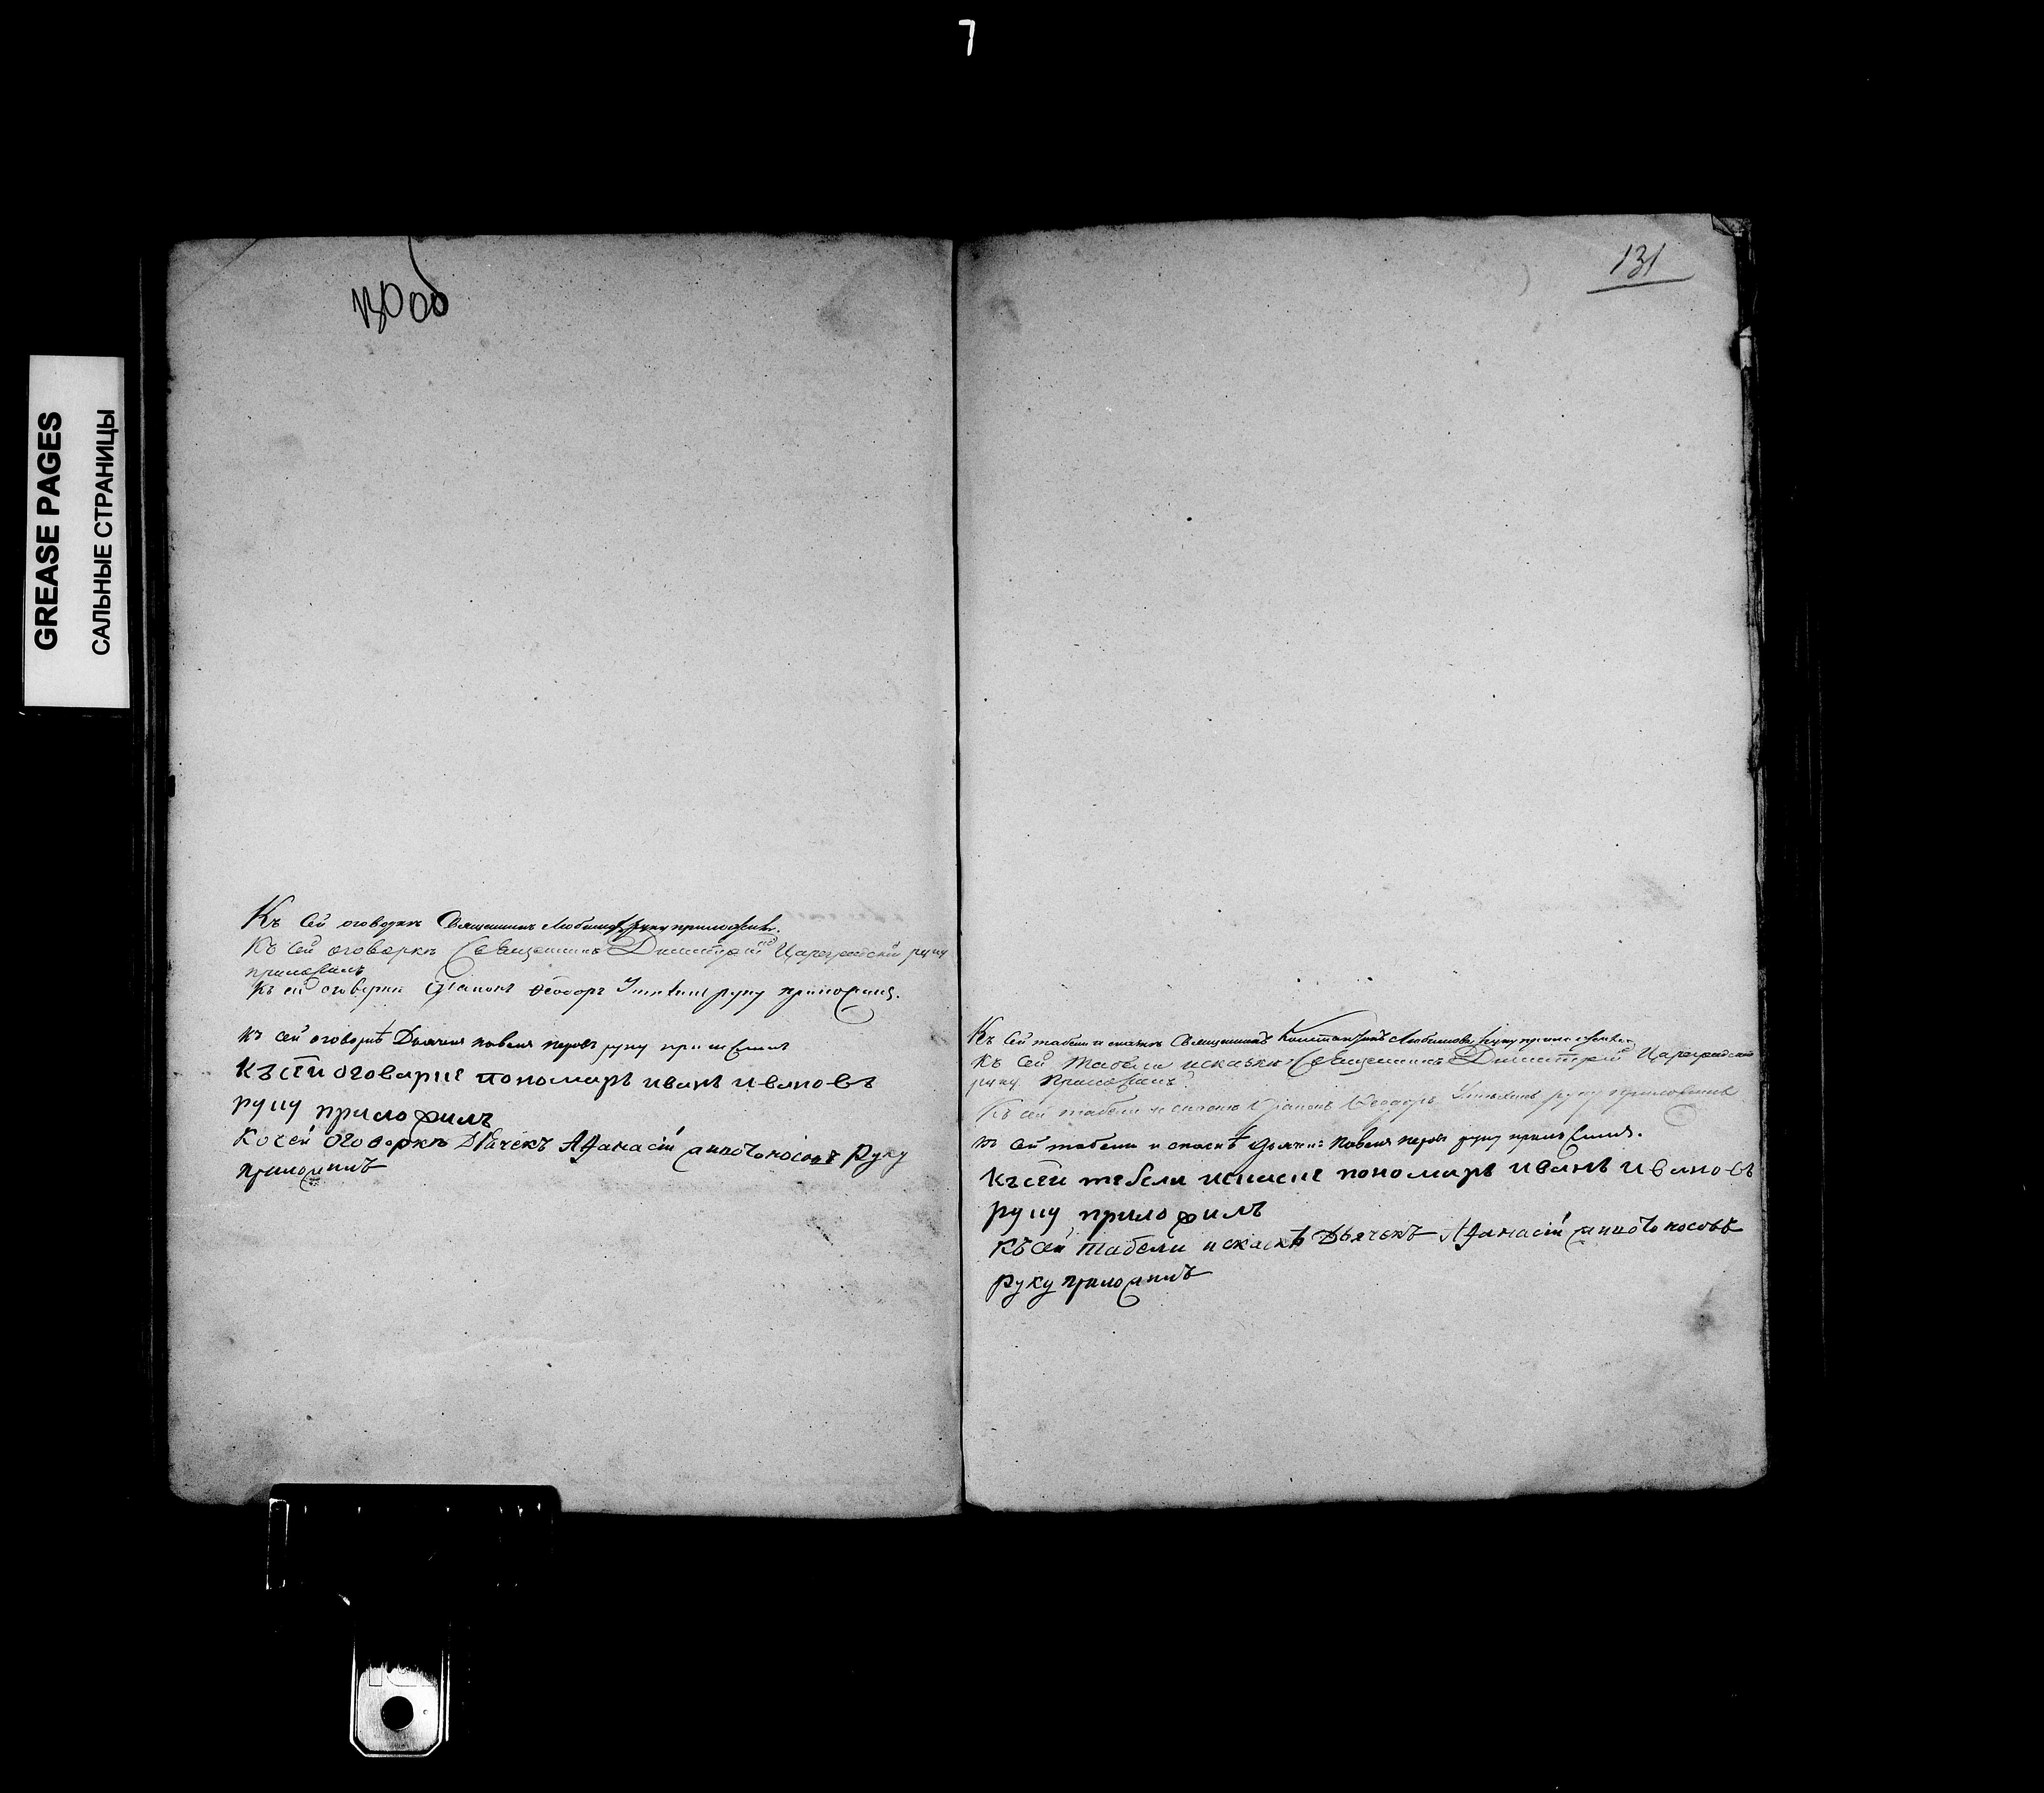 7
GREASE PAGES
САЛЬНЫЕ СТРАНИЦЫ
130 об
Къ сей оговоркѣ Священникъ Любимовъ руку приложилъ.
Къ сей оговоркѣ Священникъ Димитрій Цареградскій руку
приложилъ
Къ сей оговорки Дїаконъ Ѳеодоръ руку приложилъ.
къ сей оговоркѣ Дьячекъ павелъ перовъ руку приложилъ
Къ сеи оговарке пономарь иванъ ивановъ
руку приложилъ
Ко сей оговоркѣ Дьячекъ Афанасій руку
приложилъ
131
Къ сей табели и сказкѣ Священникъ Константинъ Любимовъ руку приложилъ
Къ сей табели и сказки Священникъ Димитрій Цареградскій
руку Приложилъ
Къ сей табели и сказкѣ Дїаконъ Ѳеодоръ руку приложилъ
къ сей табели и скаскѣ дьячекъ павелъ перовъ руку приложилъ.
Къ сеи табели искаске пономарь иванъ ивановъ
руку приложилъ
Къ сей табели и скаскѣ Дьячекъ Афанасій
руку приложилъ